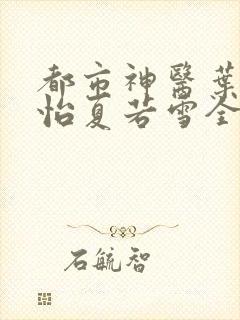 都市神醫葉
怡夏若雪全
石毓智